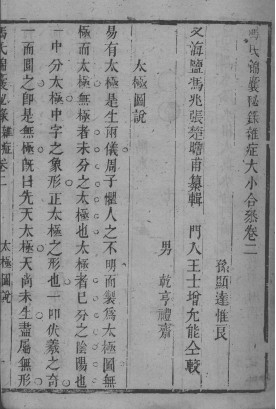 馮氏錦囊秘錄雜症大小合叅卷二
孫顯達惟良
海鹽馮兆張楚瞻甫纂輯 門人王士增允能仝較
男 乾亨禮齋
太極圖說
易有太極是生兩儀周子懼人之不明而製爲太極圖無
極而太極無極者未分之太極也太極者已分之陰陽也
一中分太極中字之象形正太極之形也一卽伏羲之奇
一而圓之卽是無極旣曰先天太極天尚未生盡屬無形
馮氏錦囊秘錄雜症卷二 太極圖說